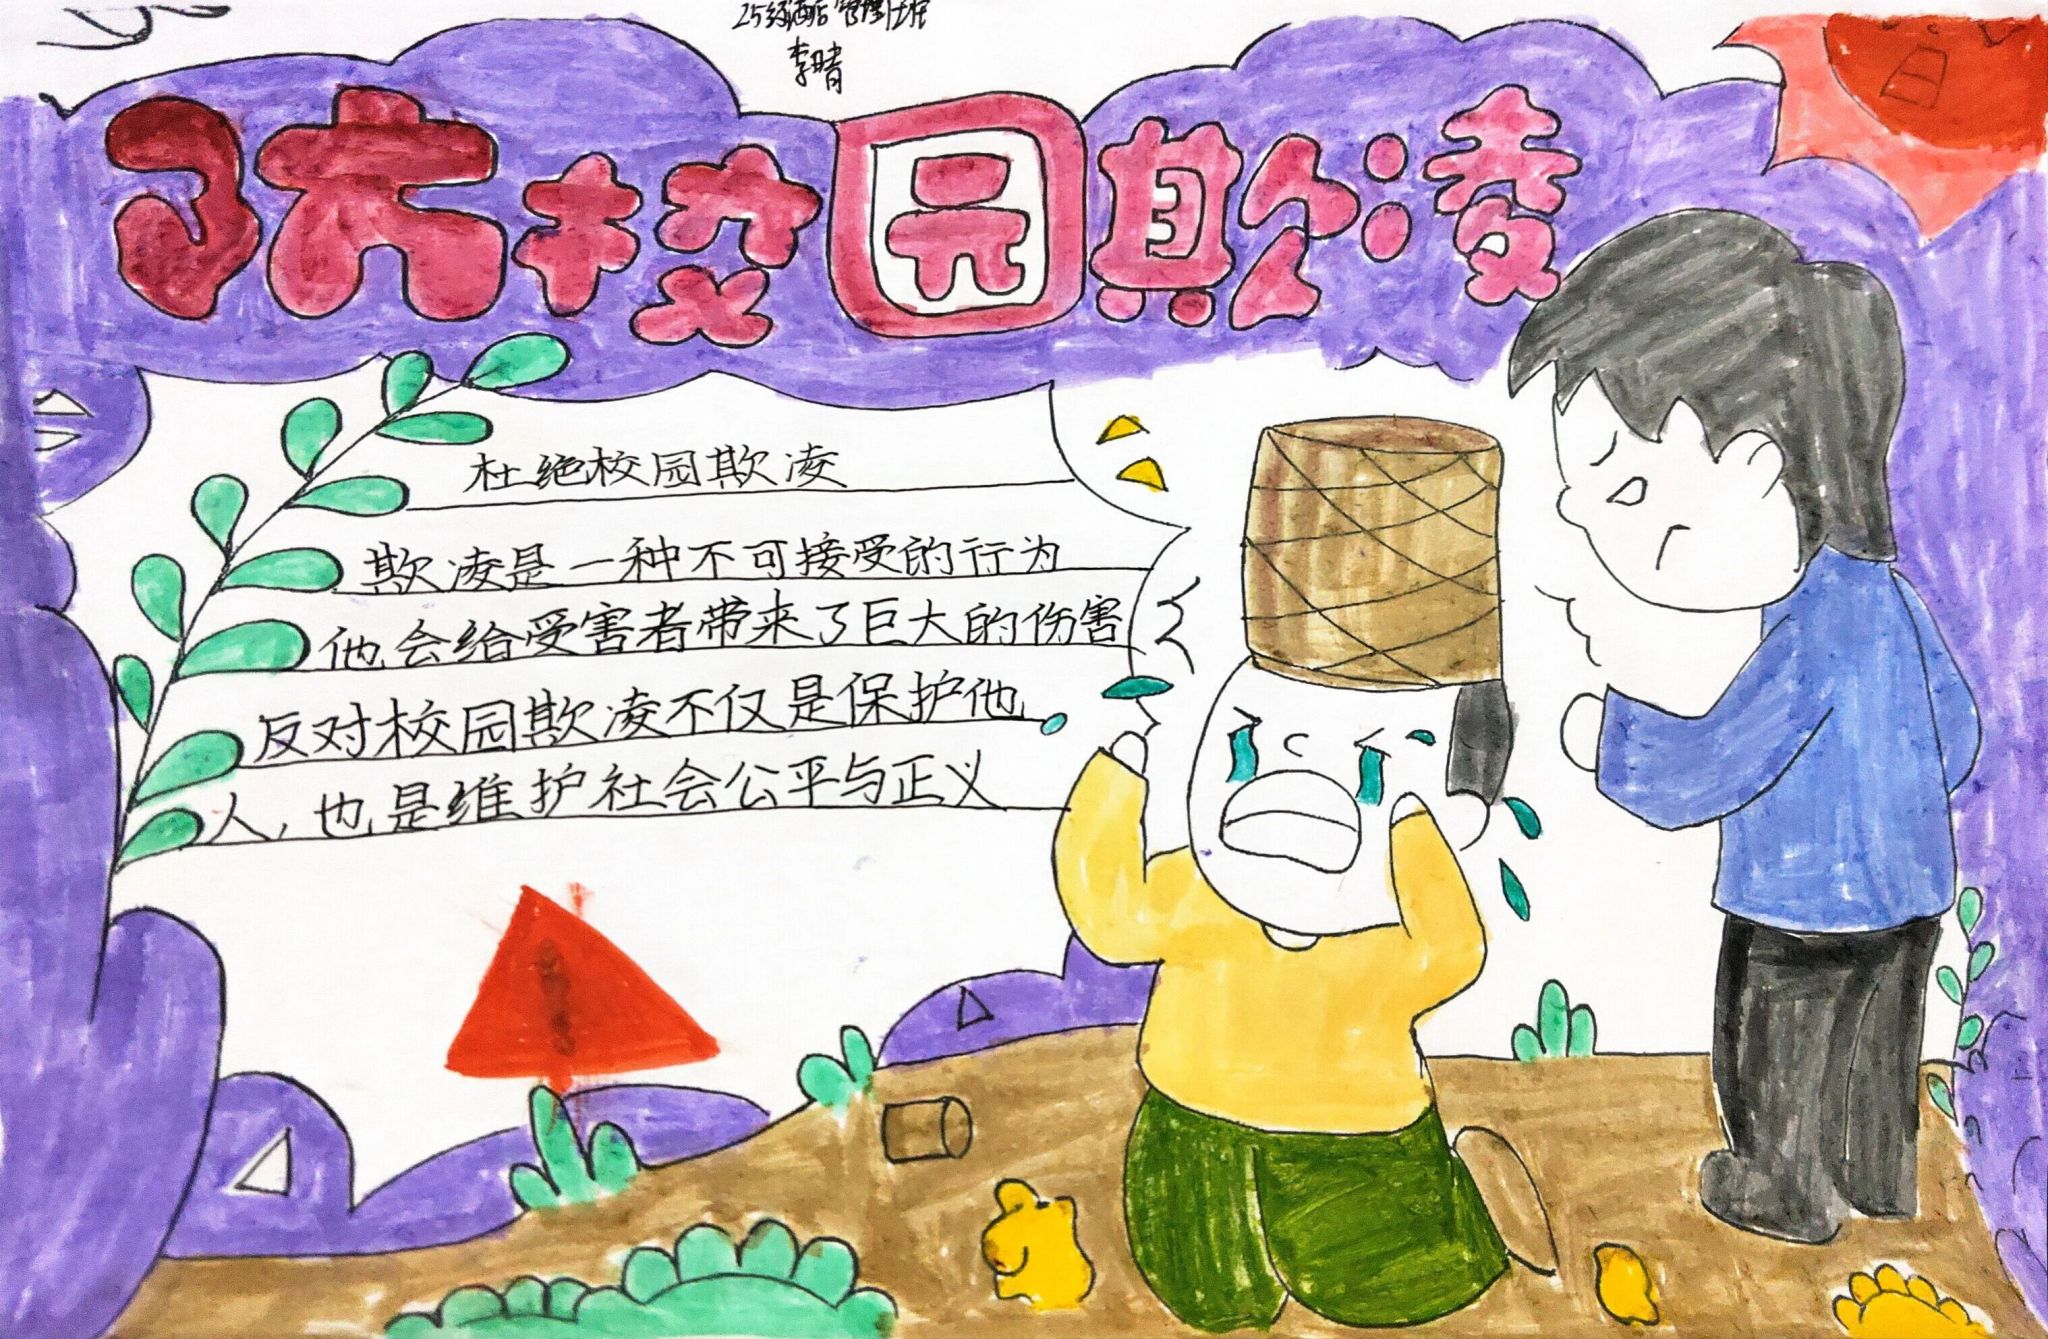 25级酒店管理1班
李晴
防校园欺凌
杜绝校园欺凌
欺凌是一种不可接受的行为
他会给受害者带来了巨大的伤害
反对校园欺凌不仅是保护他
人，也是维护社会公平与正义